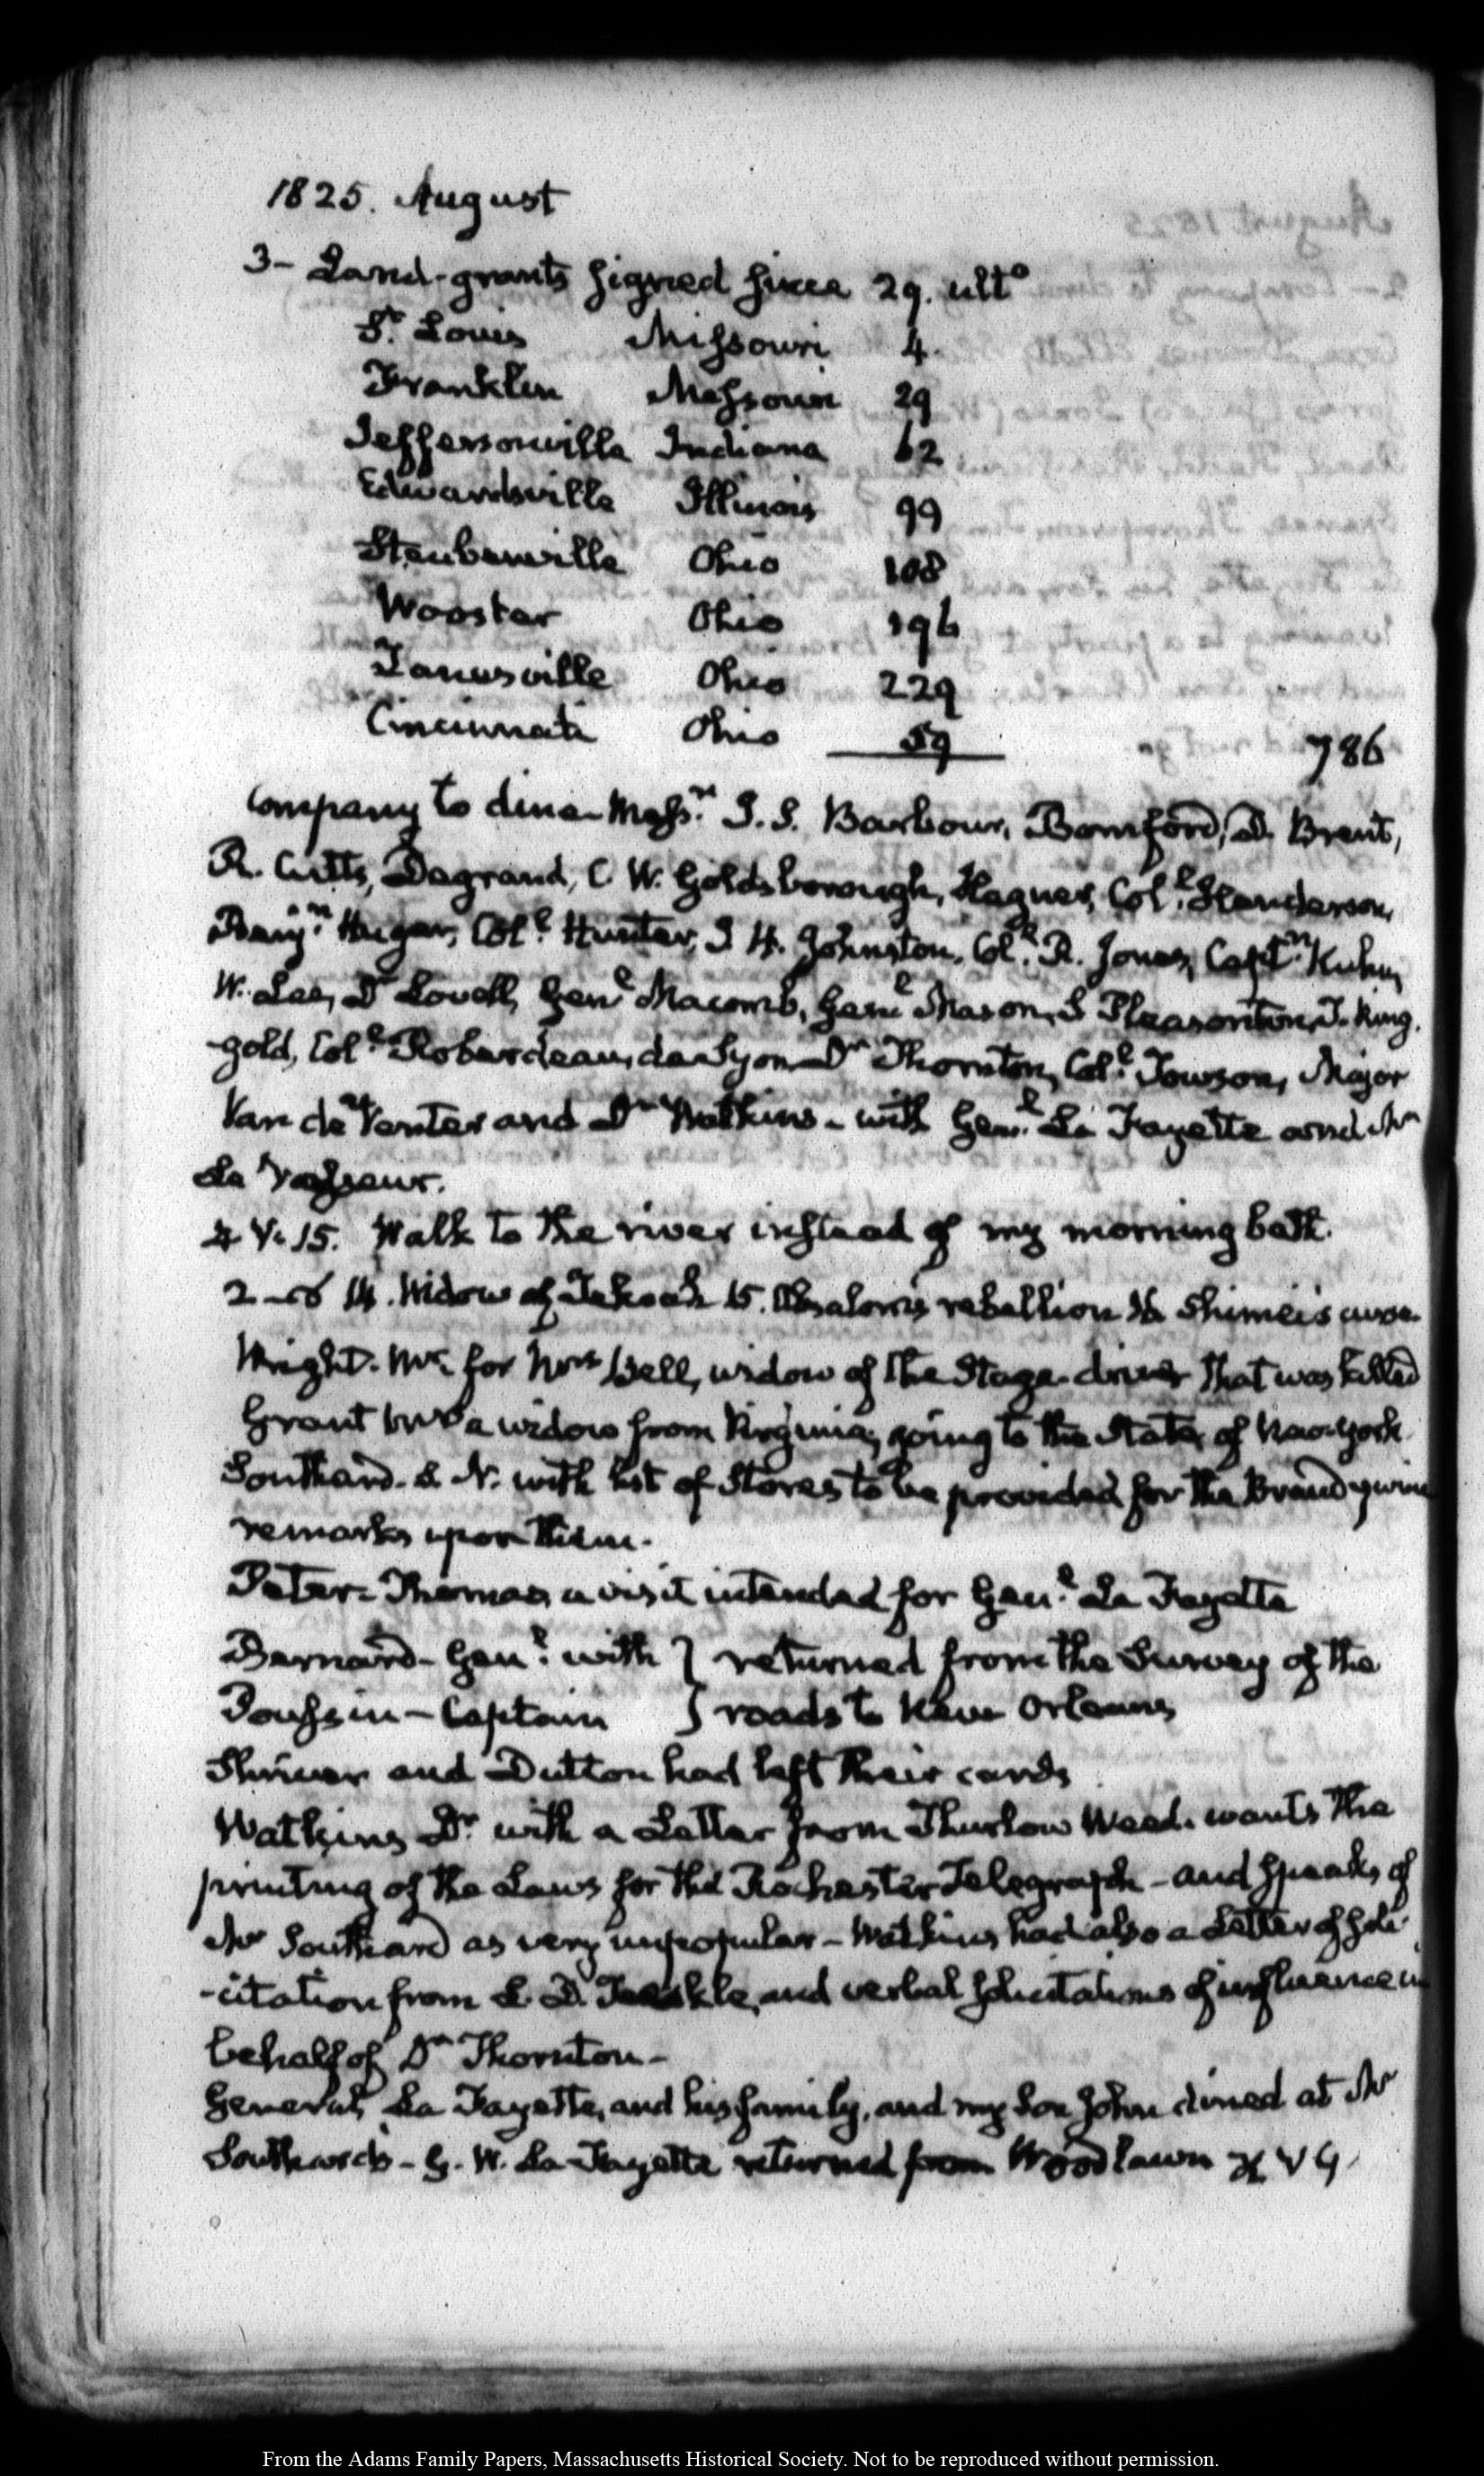 1825. August
3- Land-grants signed since 29. ulto
St. Louis Missouri 4.
Franklin Missouri 29
Jeffersonville Indiana 62
Edwardsville Illinois 99
Steubenville Ohio 108
Wooster Ohio 196
Zanesville Ohio 229
Cincinnati Ohio 59 786
Company to dine. Messrs. J. S. Barbour, Bomford, D. Brent,
R. Cutts, Degrand, C. W. Goldsborough, Hagner, Coll. Henderson,
Benjn. Huger, Coll. Hunter, J H. Johnston, Coll. R. Jones, Captn. Kuhn,
W. Lee, Dr Lovell, Genl Macomb, Genl Mason, S Pleasonton, T. Ring-
-gold, Coll. Roberdeau, de Syon Dr Thornton, Coll. Towson, Major
Van de Venter and Dr Watkins - with Genl. La Fayette and Mr
Le Vasseur.
4 V. 15. Walk to the river instead of my morning bath.
2-S 14. Widow of Tekoah 15. Absalom's rebellion 16 Shimei's curse.
Wright. for Mrs Bell, widow of the Stage-driver that was killed
Grant Mrs a widow from Virginia, going to the State of New-York
Southard. S. N. with list of Stores to be provided for the Brandywine
remarks upon them.
Peter- Thomas, a visit intended for Genl. La Fayette
Bernard- Genl. with } returned from the Survey of the
Poussin - Captain } roads to New Orleans
Shriver and Dutton had left their cards
Watkins Dr. with a Letter from Thurlow Weed. wants the
printing of the Laws for the Rochester Telegraph - and speaks of
Mr Southard as very unpopular - Watkins had also a Letter of soli-
-citation from and verbal solicitations of influence in
behalf of Dr Thornton-
General La Fayette, and his family, and my Son John dined at Mr
Southard's - G. W. La Fayette returned from Woodlawn
From the Adams Family Papers, Massachusetts Historical Society. Not to be reproduced without permission.